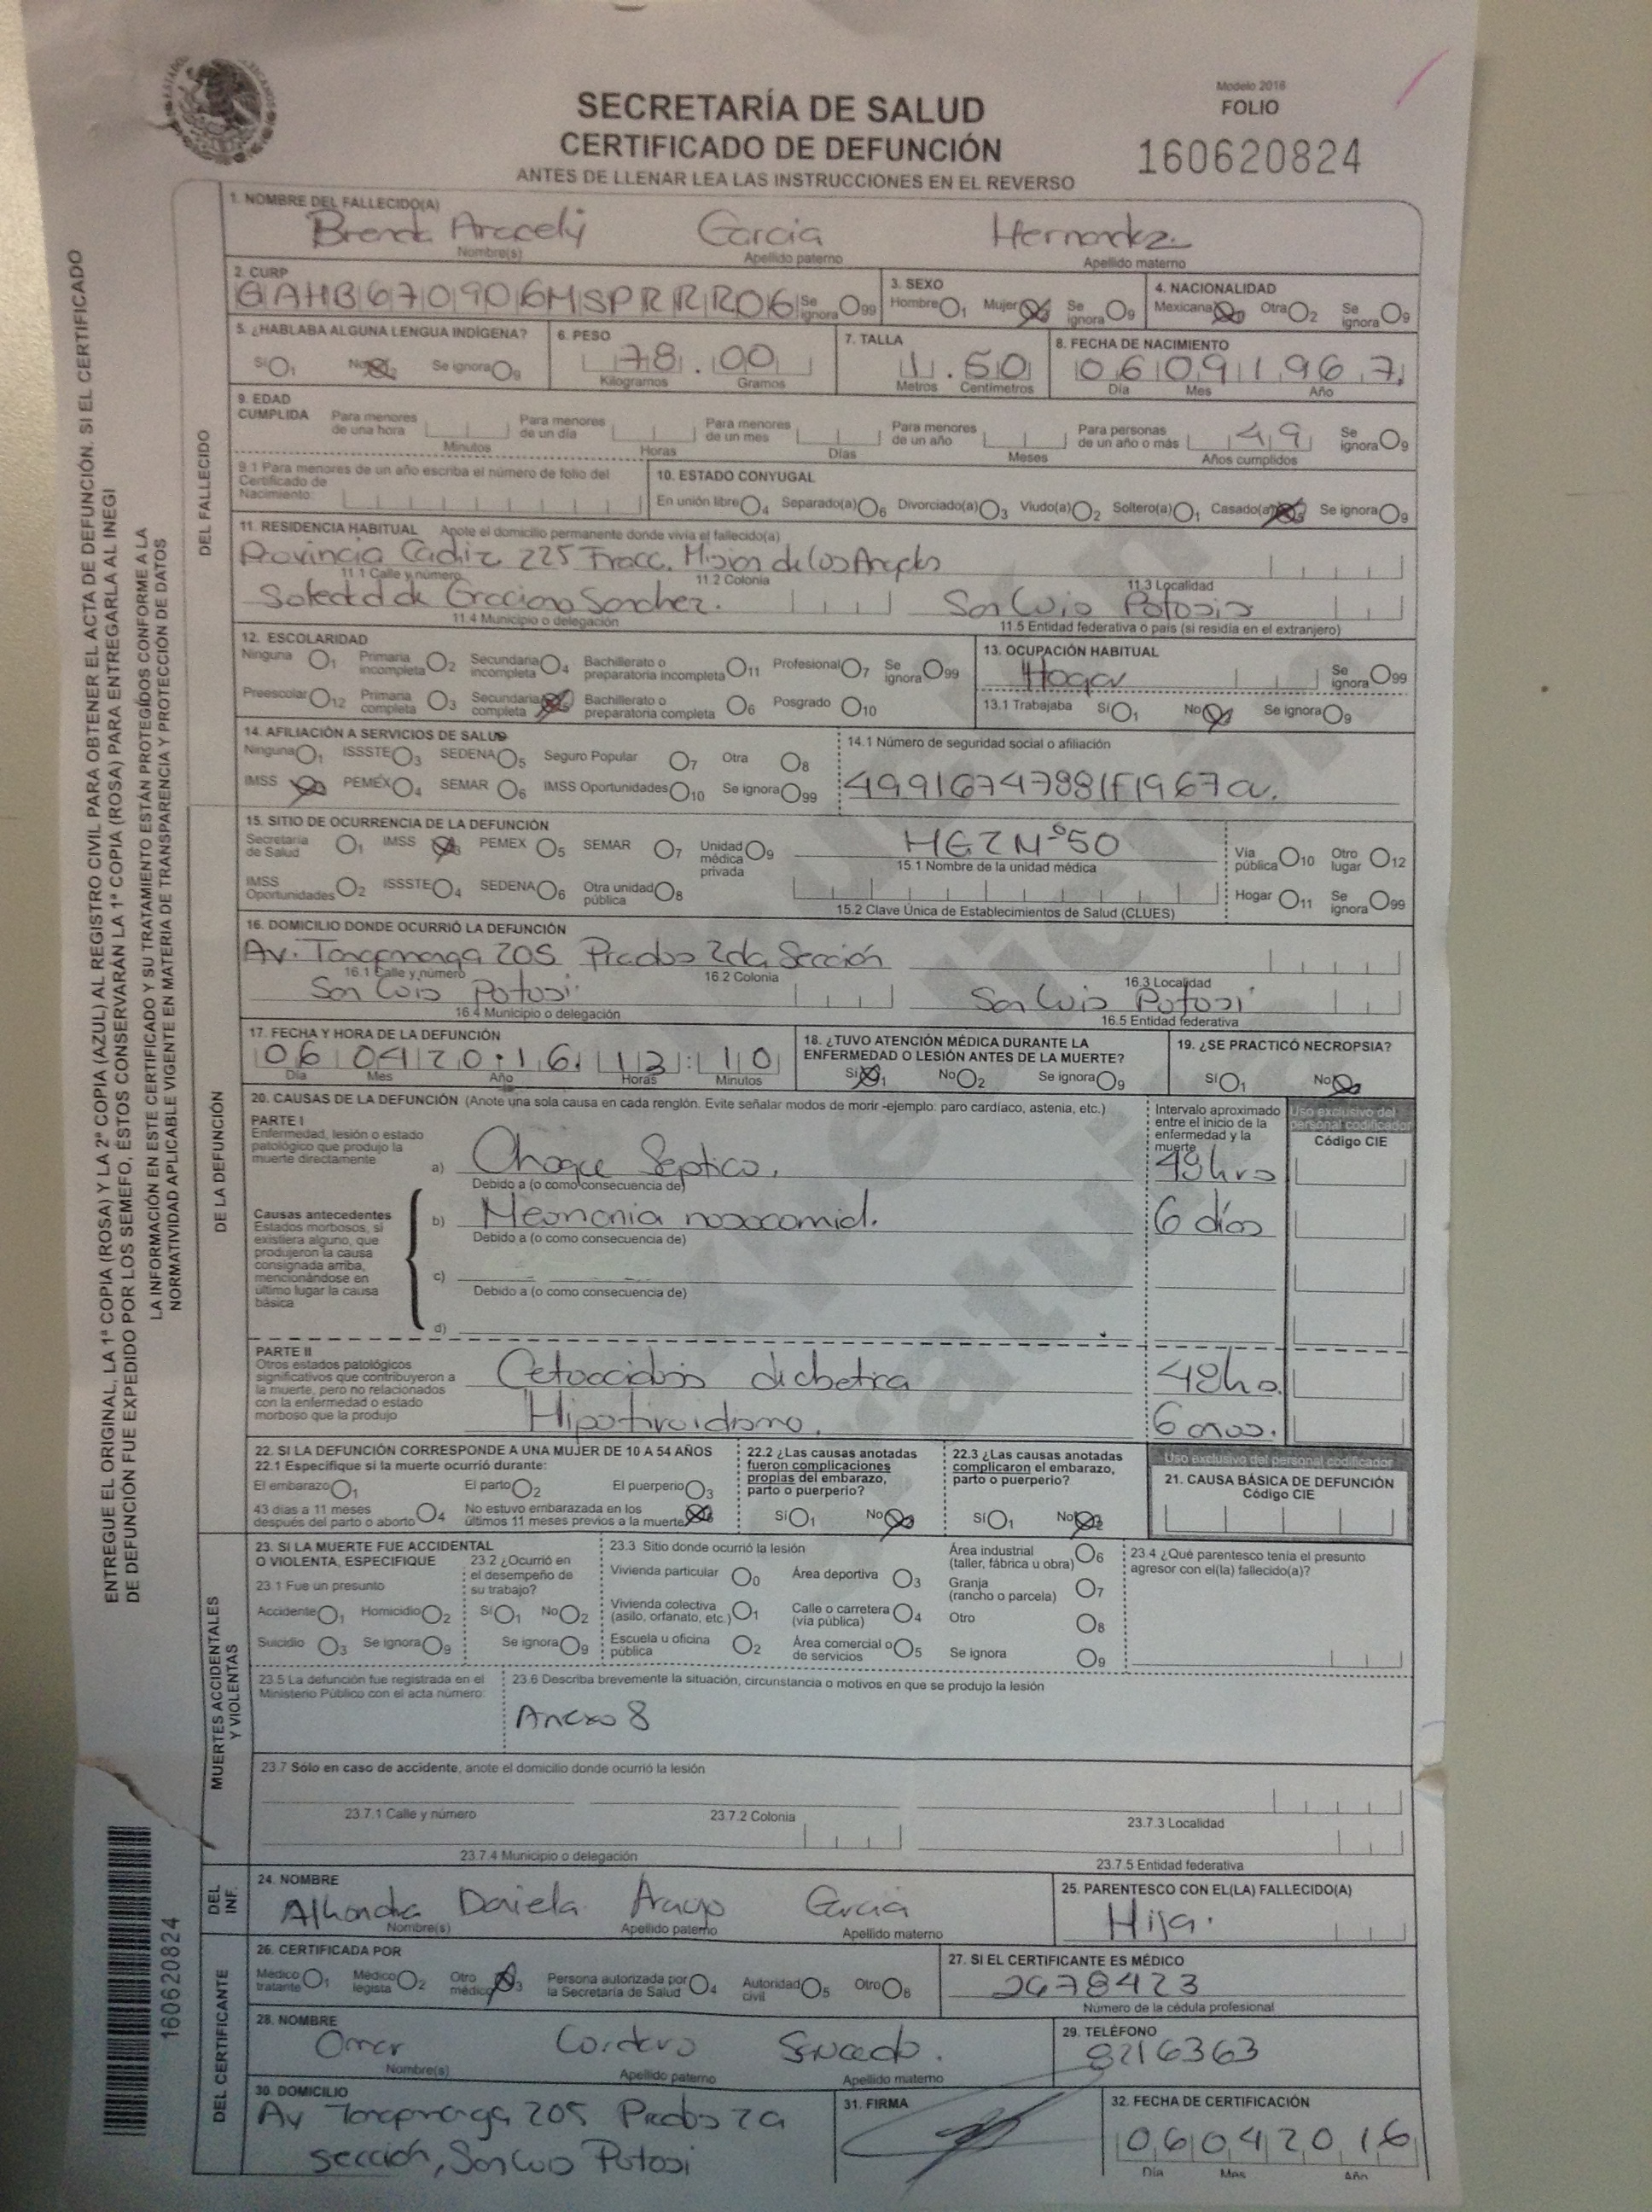 Modelo 2016
SECRETARÍA DE SALUD
FOLIO
CERTIFICADO DE DEFUNCIÓN
160620824
ANTES DE LLENAR LEA LAS INSTRUCCIONES EN EL REVERSO
ENTREGUE EL ORIGINAL, LA 1ª COPIA (ROSA) Y LA 2ª COPIA (AZUL) AL REGISTRO CIVIL PARA OBTENER EL ACTA DE DEFUNCIÓN. SI EL CERTIFICADO
DE DEFUNCIÓN FUE EXPEDIDO POR LOS SEMEFO, ÉSTOS CONSERVARÁN LA 1ª COPIA (ROSA) PARA ENTREGARLA AL INEGI
LA INFORMACIÓN EN ESTE CERTIFICADO Y SU TRATAMIENTO ESTÁN PROTEGIDOS CONFORME A LA
NORMATIVIDAD APLICABLE VIGENTE EN MATERIA DE TRANSPARENCIA Y PROTECCIÓN DE DATOS
DEL FALLECIDO
1. NOMBRE DEL FALLECIDO(A)
Brenda Aracely Garcia Hernandez
Nombre(s) Apellido paterno Apellido materno
2. CURP 3. SEXO 4. NACIONALIDAD
GAHB670906MSPRRR06 Se ignora 99 Hombre 1 Mujer Se ignora 9 Mexicana Otra 2 Se ignora 9
5. ¿HABLABA ALGUNA LENGUA INDÍGENA? 6. PESO 7. TALLA 8. FECHA DE NACIMIENTO
Sí 1 No 2 Se ignora 9 78.00 1.50 06091967
Kilogramos Gramos Metros Centímetros Día Mes Año
9. EDAD CUMPLIDA Para menores de una hora Para menores de un día Para menores de un mes Para menores de un año Para personas de un año o más 49 Se ignora 9
Minutos Horas Días Meses Años cumplidos
9.1 Para menores de un año escriba el número de folio del Certificado de Nacimiento:
10. ESTADO CONYUGAL
En unión libre 4 Separado(a) 6 Divorciado(a) 3 Viudo(a) 2 Soltero(a) 1 Casado(a) 5 Se ignora 9
11. RESIDENCIA HABITUAL Anote el domicilio permanente donde vivía el fallecido(a)
Provincia Cadiz 225 Fracc. Mision de los Angeles
11.1 Calle y número 11.2 Colonia 11.3 Localidad
Soledad de Graciano Sanchez. San Luis Potosi
11.4 Municipio o delegación 11.5 Entidad federativa o país (si residía en el extranjero)
12. ESCOLARIDAD
Ninguna 1 Primaria incompleta 2 Secundaria incompleta 4 Bachillerato o preparatoria incompleta 11 Profesional 7 Se ignora 99
Preescolar 12 Primaria completa 3 Secundaria completa 5 Bachillerato o preparatoria completa 6 Posgrado 10
13. OCUPACIÓN HABITUAL
Hogar Se ignora 99
13.1 Trabajaba Sí 1 No 2 Se ignora 9
14. AFILIACIÓN A SERVICIOS DE SALUD
Ninguna 1 ISSSTE 3 SEDENA 5 Seguro Popular 7 Otra 8
IMSS PEMEX 4 SEMAR 6 IMSS Oportunidades 10 Se ignora 99
14.1 Número de seguridad social o afiliación
DE LA DEFUNCIÓN
15. SITIO DE OCURRENCIA DE LA DEFUNCIÓN
Secretaría de Salud 1 IMSS 3 PEMEX 5 SEMAR 7 Unidad médica privada 9
IMSS Oportunidades 2 ISSSTE 4 SEDENA 6 Otra unidad pública 8
HGZ Nº50
15.1 Nombre de la unidad médica
15.2 Clave Única de Establecimientos de Salud (CLUES)
Vía pública 10 Otro lugar 12
Hogar 11 Se ignora 99
16. DOMICILIO DONDE OCURRIÓ LA DEFUNCIÓN
Av. Tangamanga 205 Prados 2da Sección
16.1 Calle y número 16.2 Colonia 16.3 Localidad
San Luis Potosi San Luis Potosi
16.4 Municipio o delegación 16.5 Entidad federativa
17. FECHA Y HORA DE LA DEFUNCIÓN
06 04 2016
Día Mes Año Horas Minutos
18. ¿TUVO ATENCIÓN MÉDICA DURANTE LA ENFERMEDAD O LESIÓN ANTES DE LA MUERTE?
Sí 1 No 2 Se ignora 9
19. ¿SE PRACTICÓ NECROPSIA?
Sí 1 No 2
20. CAUSAS DE LA DEFUNCIÓN (Anote una sola causa en cada renglón. Evite señalar modos de morir -ejemplo: paro cardíaco, astenia, etc.)
Intervalo aproximado entre el inicio de la enfermedad y la muerte
Uso exclusivo del personal codificador
Código CIE
PARTE I
Enfermedad, lesión o estado patológico que produjo la muerte directamente
a) Choque Septico. 48hrs
Debido a (o como consecuencia de)
Causas antecedentes
Estados morbosos, si existiera alguno, que produjeron la causa consignada arriba, mencionándose en último lugar la causa básica
b) Neumonia nosocomial. 6 días
Debido a (o como consecuencia de)
c)
Debido a (o como consecuencia de)
d)
PARTE II
Otros estados patológicos significativos que contribuyeron a la muerte, pero no relacionados con la enfermedad o estado morboso que la produjo
Cetoacidosis diabetica 48hs.
Hipotiroidismo. 6 años.
22. SI LA DEFUNCIÓN CORRESPONDE A UNA MUJER DE 10 A 54 AÑOS
22.1 Especifique si la muerte ocurrió durante:
El embarazo 1 El parto 2 El puerperio 3
43 días a 11 meses después del parto o aborto 4 No estuvo embarazada en los últimos 11 meses previos a la muerte
22.2 ¿Las causas anotadas fueron complicaciones propias del embarazo, parto o puerperio?
Sí 1 No 2
22.3 ¿Las causas anotadas complicaron el embarazo, parto o puerperio?
Sí 1 No 2
Uso exclusivo del personal codificador
21. CAUSA BÁSICA DE DEFUNCIÓN
Código CIE
MUERTES ACCIDENTALES Y VIOLENTAS
23. SI LA MUERTE FUE ACCIDENTAL O VIOLENTA, ESPECIFIQUE
23.1 Fue un presunto
Accidente 1 Homicidio 2
Suicidio 3 Se ignora 9
23.2 ¿Ocurrió en el desempeño de su trabajo?
Sí 1 No 2
Se ignora 9
23.3 Sitio donde ocurrió la lesión
Vivienda particular 0 Área deportiva 3
Vivienda colectiva (asilo, orfanato, etc.) 1 Calle o carretera (vía pública) 4
Escuela u oficina pública 2 Área comercial o de servicios 5
Área industrial (taller, fábrica u obra) 6
Granja (rancho o parcela) 7
Otro 8
Se ignora 9
23.4 ¿Qué parentesco tenía el presunto agresor con el(la) fallecido(a)?
23.5 La defunción fue registrada en el Ministerio Público con el acta número:
23.6 Describa brevemente la situación, circunstancia o motivos en que se produjo la lesión
Anexo 8
23.7 Sólo en caso de accidente, anote el domicilio donde ocurrió la lesión
23.7.1 Calle y número 23.7.2 Colonia 23.7.3 Localidad
23.7.4 Municipio o delegación 23.7.5 Entidad federativa
DEL INF.
24. NOMBRE
Daniela Araujo Garcia
Nombre(s) Apellido paterno Apellido materno
25. PARENTESCO CON EL(LA) FALLECIDO(A)
Hija.
DEL CERTIFICANTE
26. CERTIFICADA POR
Médico tratante 1 Médico legista 2 Otro médico 3 Persona autorizada por la Secretaría de Salud 4 Autoridad civil 5 Otro 8
27. SI EL CERTIFICANTE ES MÉDICO
2678423
Número de la cédula profesional
28. NOMBRE
Omar Cordero
Nombre(s) Apellido paterno Apellido materno
29. TELÉFONO
8216363
30. DOMICILIO
Av Tangamanga 205 Prados 2a
sección, San Luis Potosi
31. FIRMA
32. FECHA DE CERTIFICACIÓN
06042016
Día Mes Año
160620824